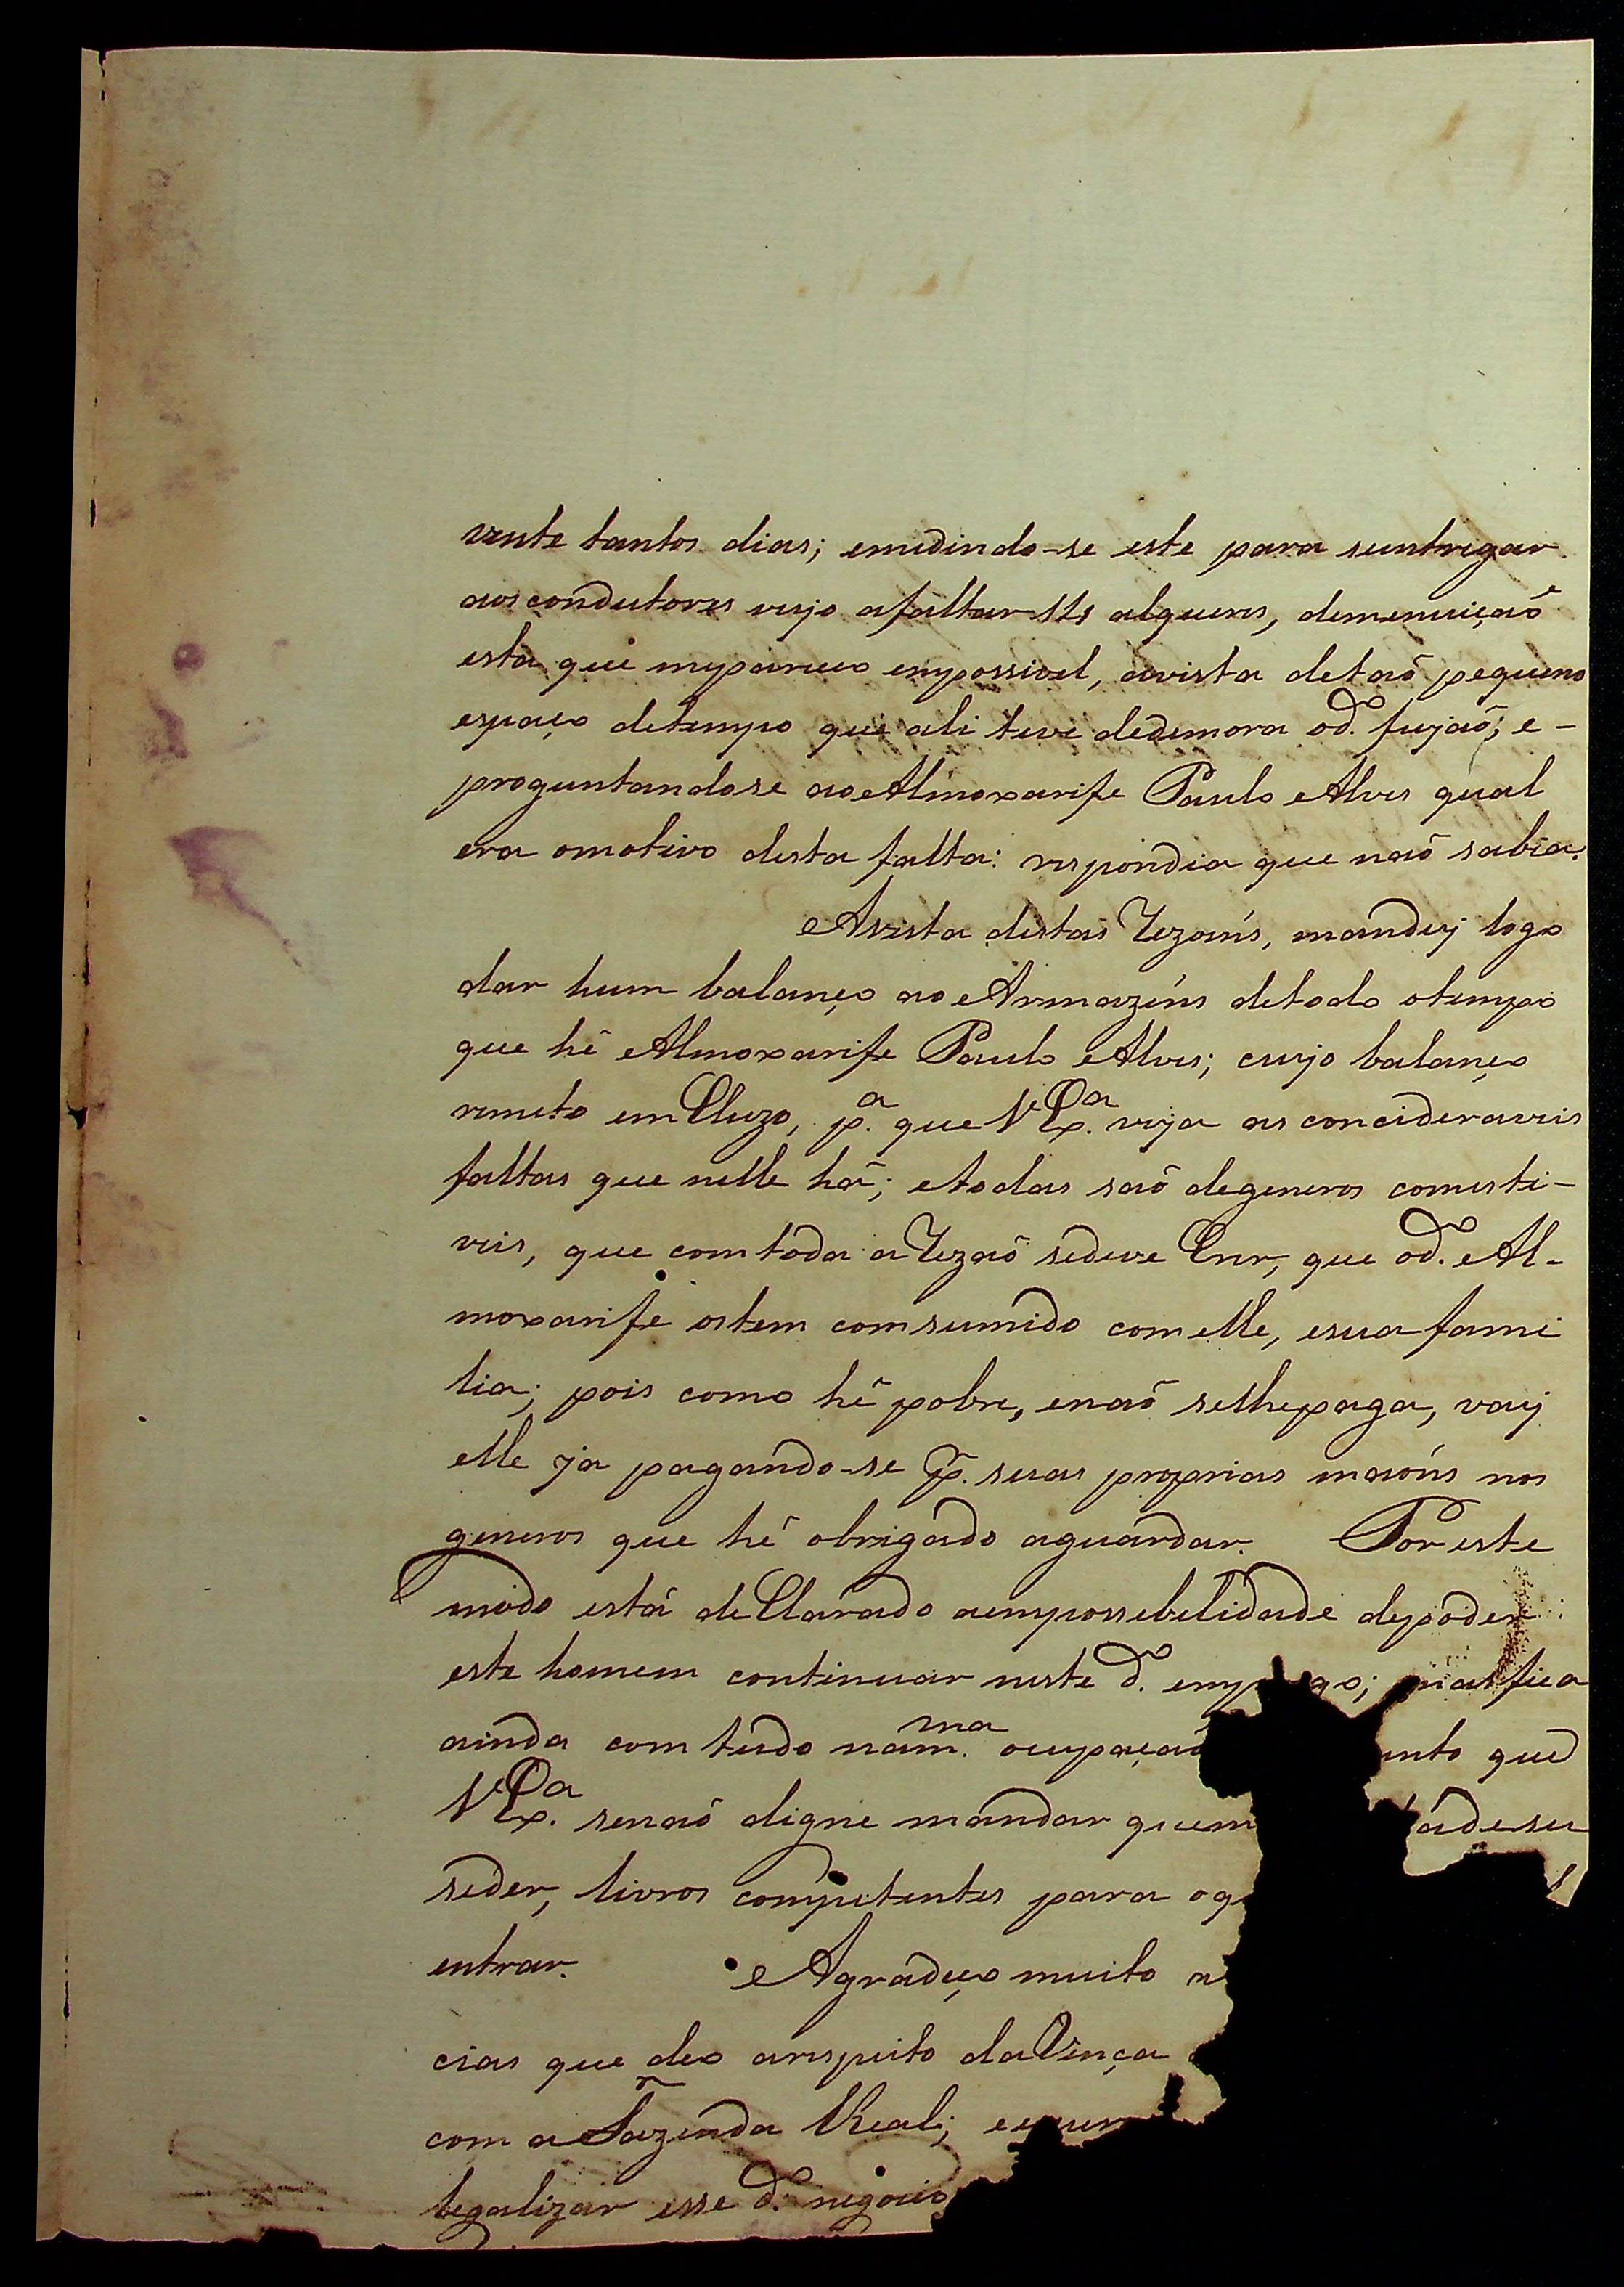 vinte tantos dias; emedindo-se este para seentregar
aos condutores veyo afaltar 115 alqueres, demenuiçaõ
esta que mepareceo empossivel, avista detaõ pequeno
espaço detempo que ali teve dedemora od.º fejaõ; e-
proguntandose ao Almoxarife Paulo Alves qual
era omotivo desta falta: respondia que naõ sabia.
Avista destas Rezoins, mandey logo
dar hum balanço ao Armazéns detodo otempo
que hé Almoxarife Paulo Alves; cujo balanço
remeto em Cluzo, p.ª que V Ex.ª veja as concideraveis
faltas que nelle há; etodas saõ degeneros comesti-
veis, que com toda a Rezaõ sedeve Crer, que od.º Al-
moxarife ostem comsumido com elle, esua fami
lia; pois como hé pobre, enaõ selhepaga, vay
elle ja pagando-se p.r suas proprias maóns nos
generos que hé obrigado aguardar. Por este
modo está deClarado aempossebelidade depoder
este homem continuar neste d.º emp go; mas fica
ainda com tudo nam.ma ocupaçaõ nto que
V Ex.ª senaõ digne mandar quem ádesu
seder, livros competentes para oq
entrar. Agradeço muito
cias que deo arespeito da Vença
com a Fazenda Real; e
legalizar esse d.º negocio